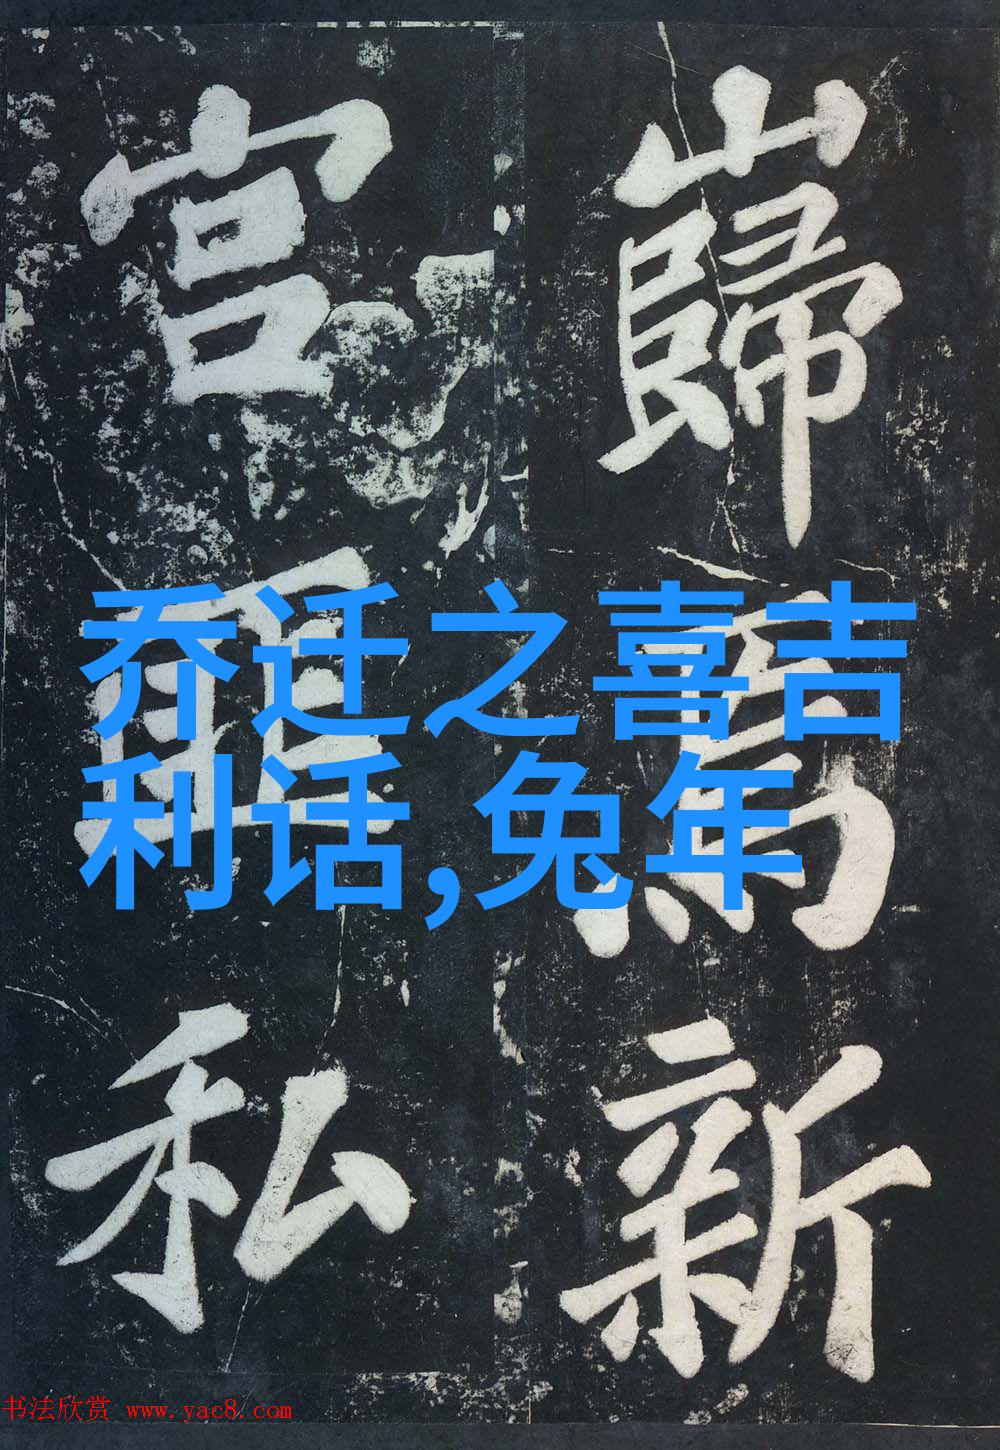 巋焉新
宫私
乔迁之喜吉
利话,兔年
书法欣赏 www.yac8.com